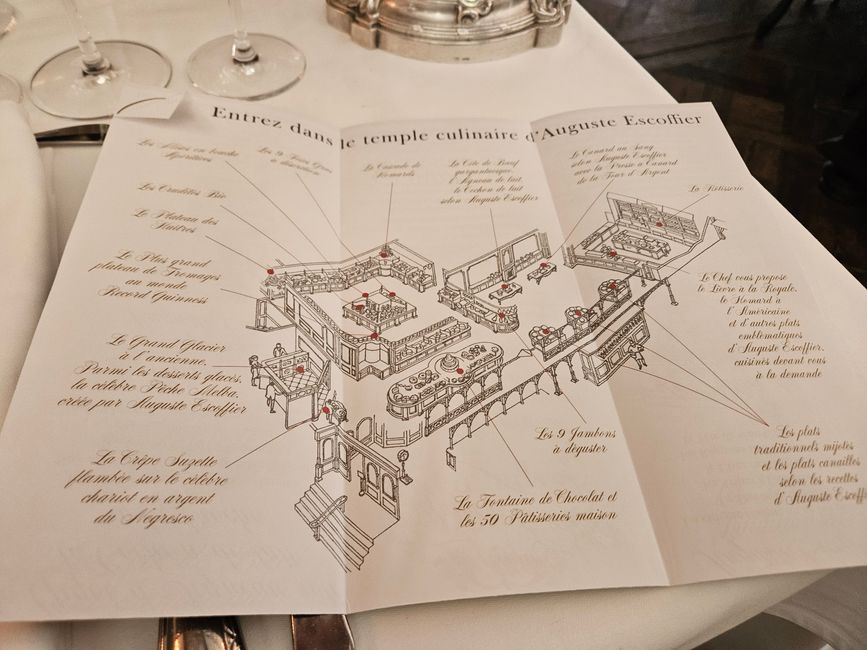 Entrez dans le temple culinaire d'Auguste Escoffier
Les Mises en bouche
Apéritives
Les 9 Foies Gras
à discrétion
La Cascade de
Homards
La Côte de Bœuf
gargantuesque,
l'Agneau de lait,
le Cochon de lait
selon Auguste Escoffier
Le Canard au Sang
selon Auguste Escoffier
avec la Presse à Canard
de la Tour d'Argent
La Rôtisserie
Les Crudités Bio
Le Plateau des
Huîtres
Le Plus grand
plateau de Fromages
au monde
Record Guinness
Le Grand Glacier
à l'ancienne.
Parmi les desserts glacés,
la célèbre Pêche Melba,
créée par Auguste Escoffier
La Crêpe Suzette
flambée sur le célèbre
chariot en argent
du Negresco
Le Chef vous propose
le Lièvre à la Royale,
le Homard à
l'Américaine
et d'autres plats
emblématiques
d'Auguste Escoffier,
cuisinés devant vous
à la demande
Les 9 Jambons
à déguster
La Fontaine de Chocolat et
les 50 Pâtisseries maison
Les plats
traditionnels mijotés
et les plats canailles
selon les recettes
d'Auguste Escoff